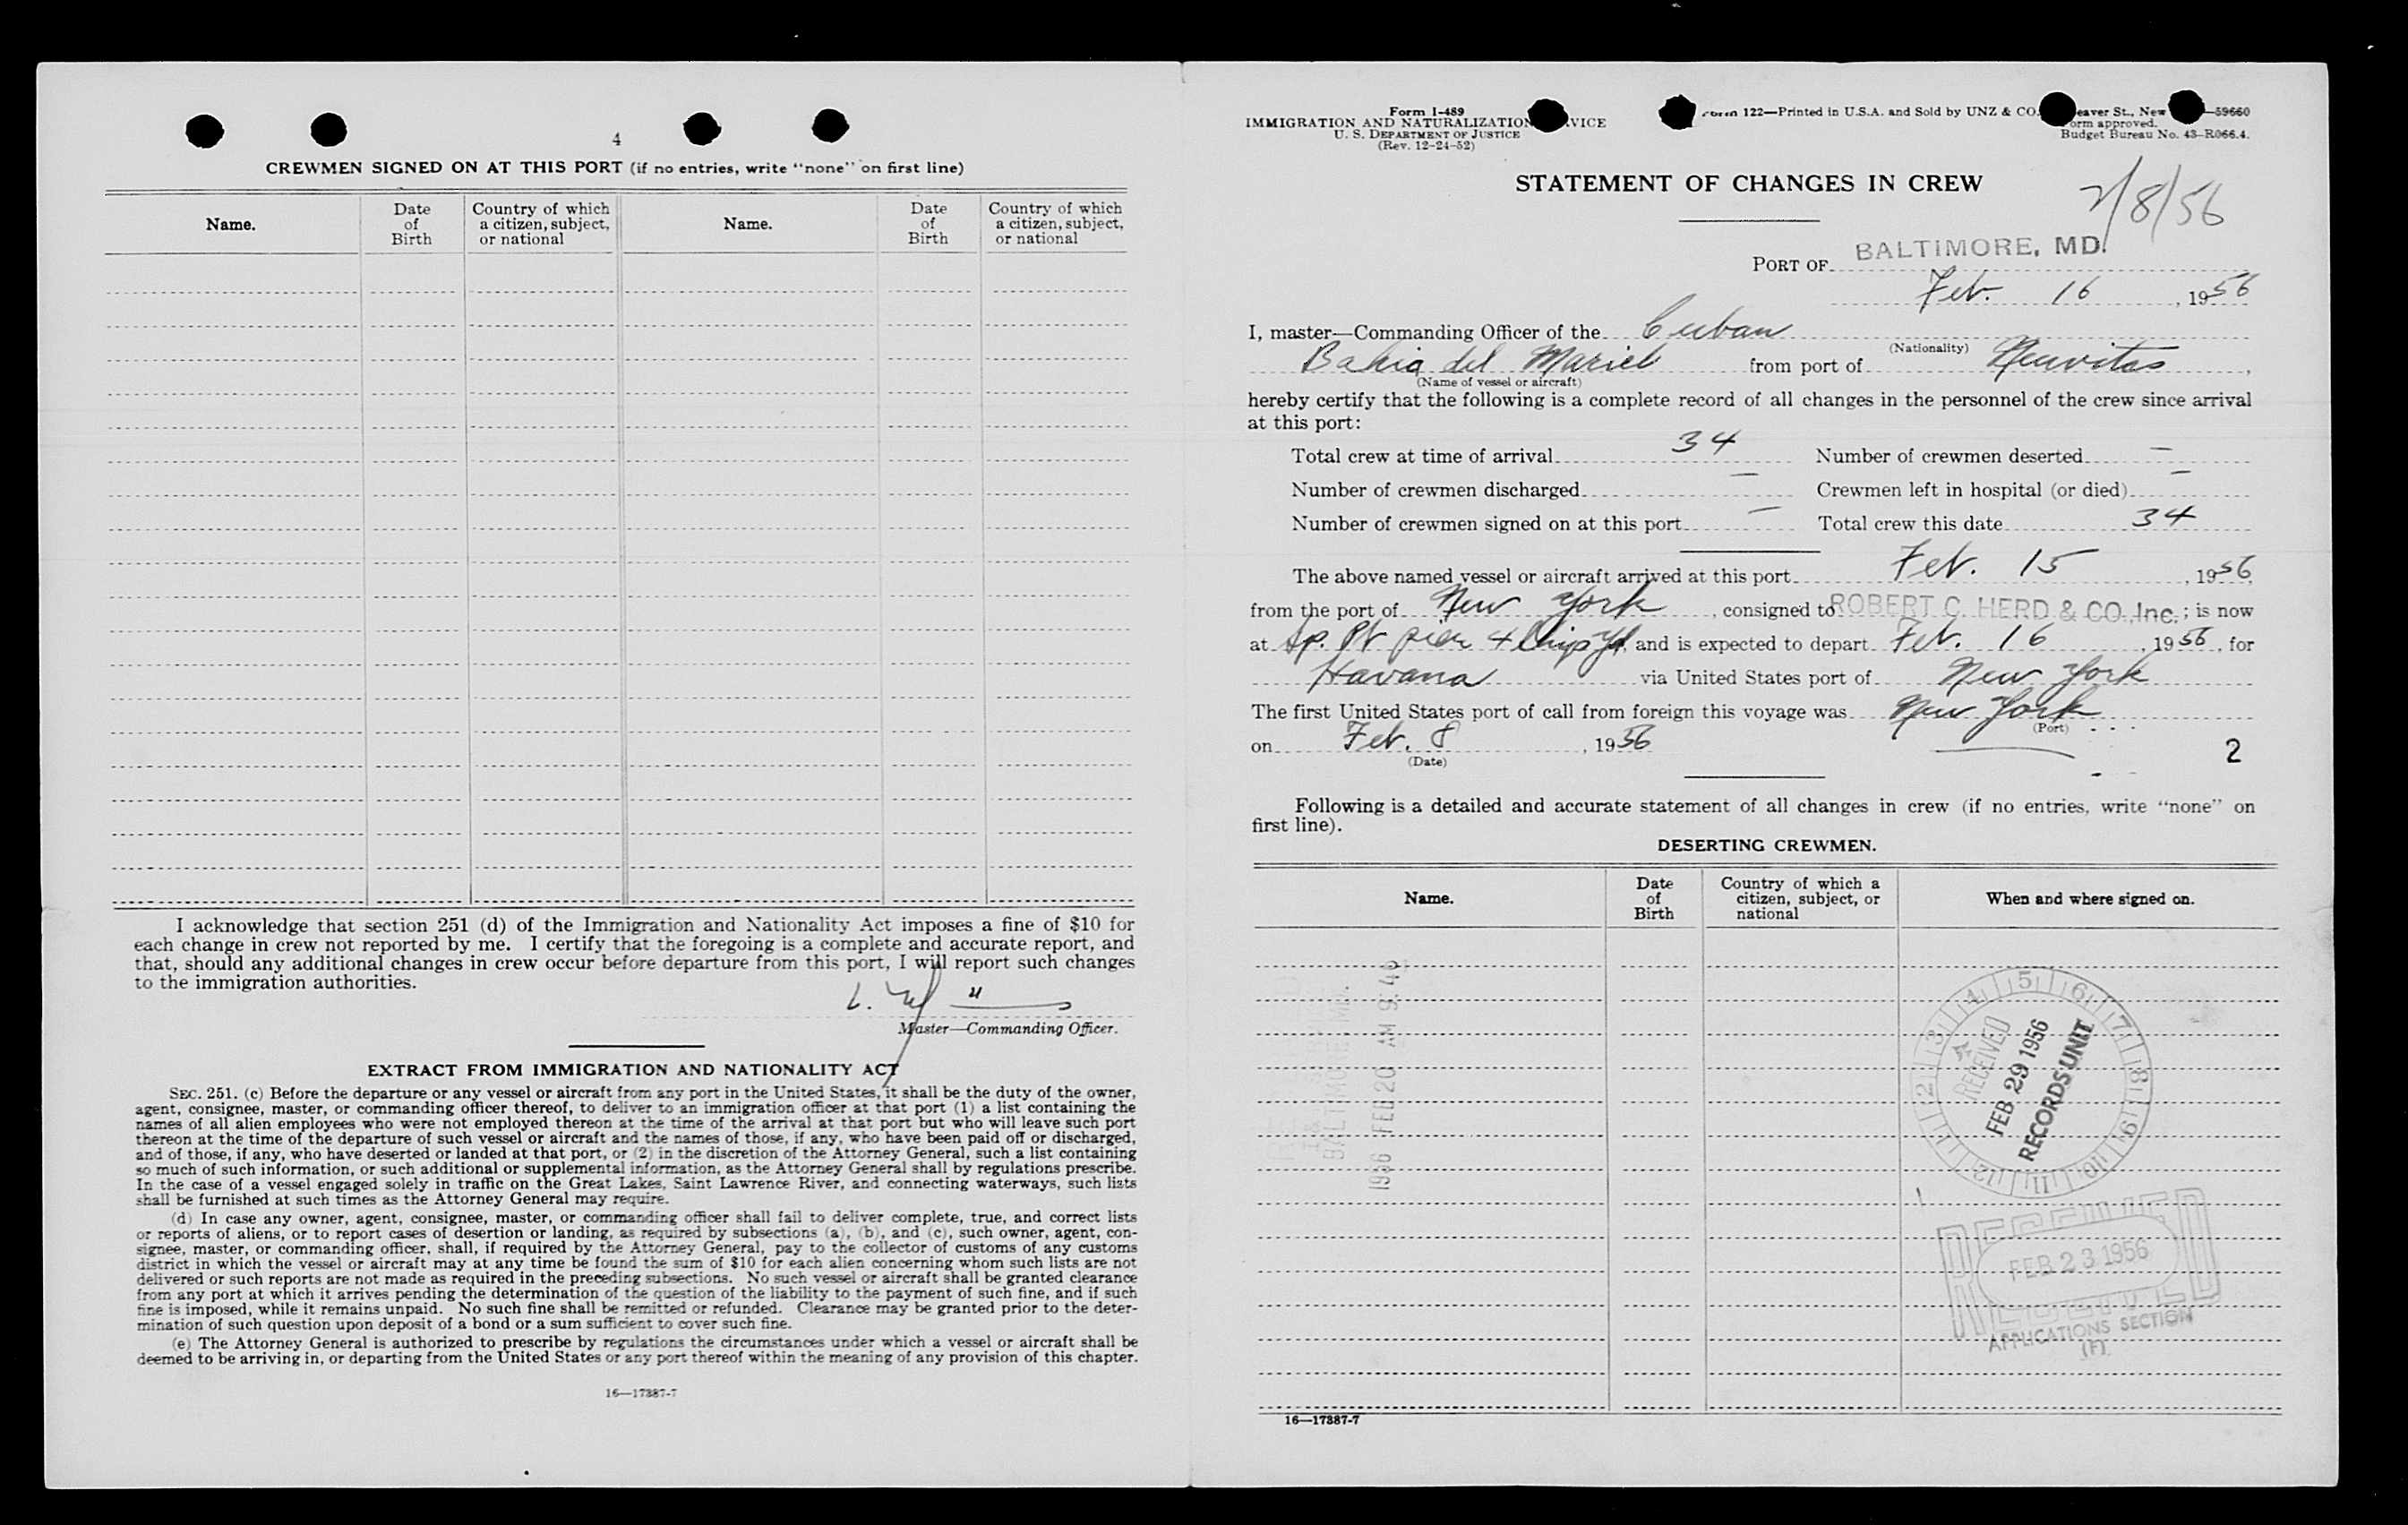 4
CREWMEN SIGNED ON AT THIS PORT (if no entries, write "none" on first line)
Name.
Date
of
Birth
Country of which
a citizen, subject,
or national
Name.
Date
of
Birth
Country of which
a citizen, subject,
or national
I acknowledge that section 251 (d) of the Immigration and Nationality Act imposes a fine of $10 for
each change in crew not reported by me. I certify that the foregoing is a complete and accurate report, and
that, should any additional changes in crew occur before departure from this port, I will report such changes
to the immigration authorities.
Master—Commanding Officer.
EXTRACT FROM IMMIGRATION AND NATIONALITY ACT
SEC. 251. (c) Before the departure or any vessel or aircraft from any port in the United States, it shall be the duty of the owner,
agent, consignee, master, or commanding officer thereof, to deliver to an immigration officer at that port (1) a list containing the
names of all alien employees who were not employed thereon at the time of the arrival at that port but who will leave such port
thereon at the time of the departure of such vessel or aircraft and the names of those, if any, who have been paid off or discharged,
and of those, if any, who have deserted or landed at that port, or (2) in the discretion of the Attorney General, such a list containing
so much of such information, or such additional or supplemental information, as the Attorney General shall by regulations prescribe.
In the case of a vessel engaged solely in traffic on the Great Lakes, Saint Lawrence River, and connecting waterways, such lists
shall be furnished at such times as the Attorney General may require.
(d) In case any owner, agent, consignee, master, or commanding officer shall fail to deliver complete, true, and correct lists
or reports of aliens, or to report cases of desertion or landing, as required by subsections (a), (b), and (c), such owner, agent, con-
signee, master, or commanding officer, shall, if required by the Attorney General, pay to the collector of customs of any customs
district in which the vessel or aircraft may at any time be found the sum of $10 for each alien concerning whom such lists are not
delivered or such reports are not made as required in the preceding subsections. No such vessel or aircraft shall be granted clearance
from any port at which it arrives pending the determination of the question of the liability to the payment of such fine, and if such
fine is imposed, while it remains unpaid. No such fine shall be remitted or refunded. Clearance may be granted prior to the deter-
mination of such question upon deposit of a bond or a sum sufficient to cover such fine.
(e) The Attorney General is authorized to prescribe by regulations the circumstances under which a vessel or aircraft shall be
deemed to be arriving in, or departing from the United States or any port thereof within the meaning of any provision of this chapter.
16—17887-7
Form I-489
IMMIGRATION AND NATURALIZATION
U. S. DEPARTMENT OF JUSTICE
(Rev. 12-24-52)
Form 122—Printed in U.S.A. and Sold by UNZ & CO. eaver St., New 59660
orm approved.
Budget Bureau No. 43-R066.4.
STATEMENT OF CHANGES IN CREW
2/8/56
PORT OF BALTIMORE, MD.
Feb. 16, 1956
I, master—Commanding Officer of the Cuban
(Nationality)
Bahia del Mariel from port of Neuvitas,
(Name of vessel or aircraft)
hereby certify that the following is a complete record of all changes in the personnel of the crew since arrival
at this port:
Total crew at time of arrival 34 Number of crewmen deserted —
Number of crewmen discharged — Crewmen left in hospital (or died) —
Number of crewmen signed on at this port — Total crew this date 34
The above named vessel or aircraft arrived at this port Feb. 15, 1956,
from the port of New York, consigned to ROBERT C. HERD & CO., Inc.; is now
at Sp. Pt pier 4 Ship Yd, and is expected to depart Feb. 16, 1956, for
Havana via United States port of New York
The first United States port of call from foreign this voyage was New York
(Port)
on Feb. 8, 1956
(Date)
2
Following is a detailed and accurate statement of all changes in crew (if no entries, write "none" on
first line).
DESERTING CREWMEN.
Name.
Date
of
Birth
Country of which a
citizen, subject, or
national
When and where signed on.
BALTIMORE MD.
1956 FEB 20 AM 9:40
1 2 3 4 5 6 7 8 9 10 11 12
RECEIVED
FEB 29 1956
RECORDS UNIT
RECEIVED
FEB 23 1956
RECEIVED
APPLICATIONS SECTION
(F)
16—17887-7